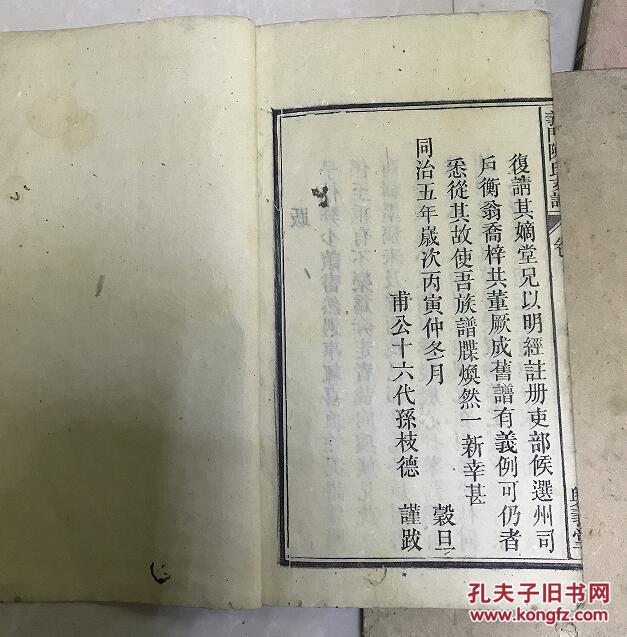 義門陳氏支譜
卷
復請其嫡堂兄以明經註册吏部候選州司
戶衡翁喬梓共董厥成舊譜有義例可仍者
悉從其故使吾族譜牒煥然一新幸甚
同治五年歲次丙寅仲冬月 穀旦
甫公十六代孫枝德 謹跋
跋
孔夫子旧书网
KONGFZ.COM